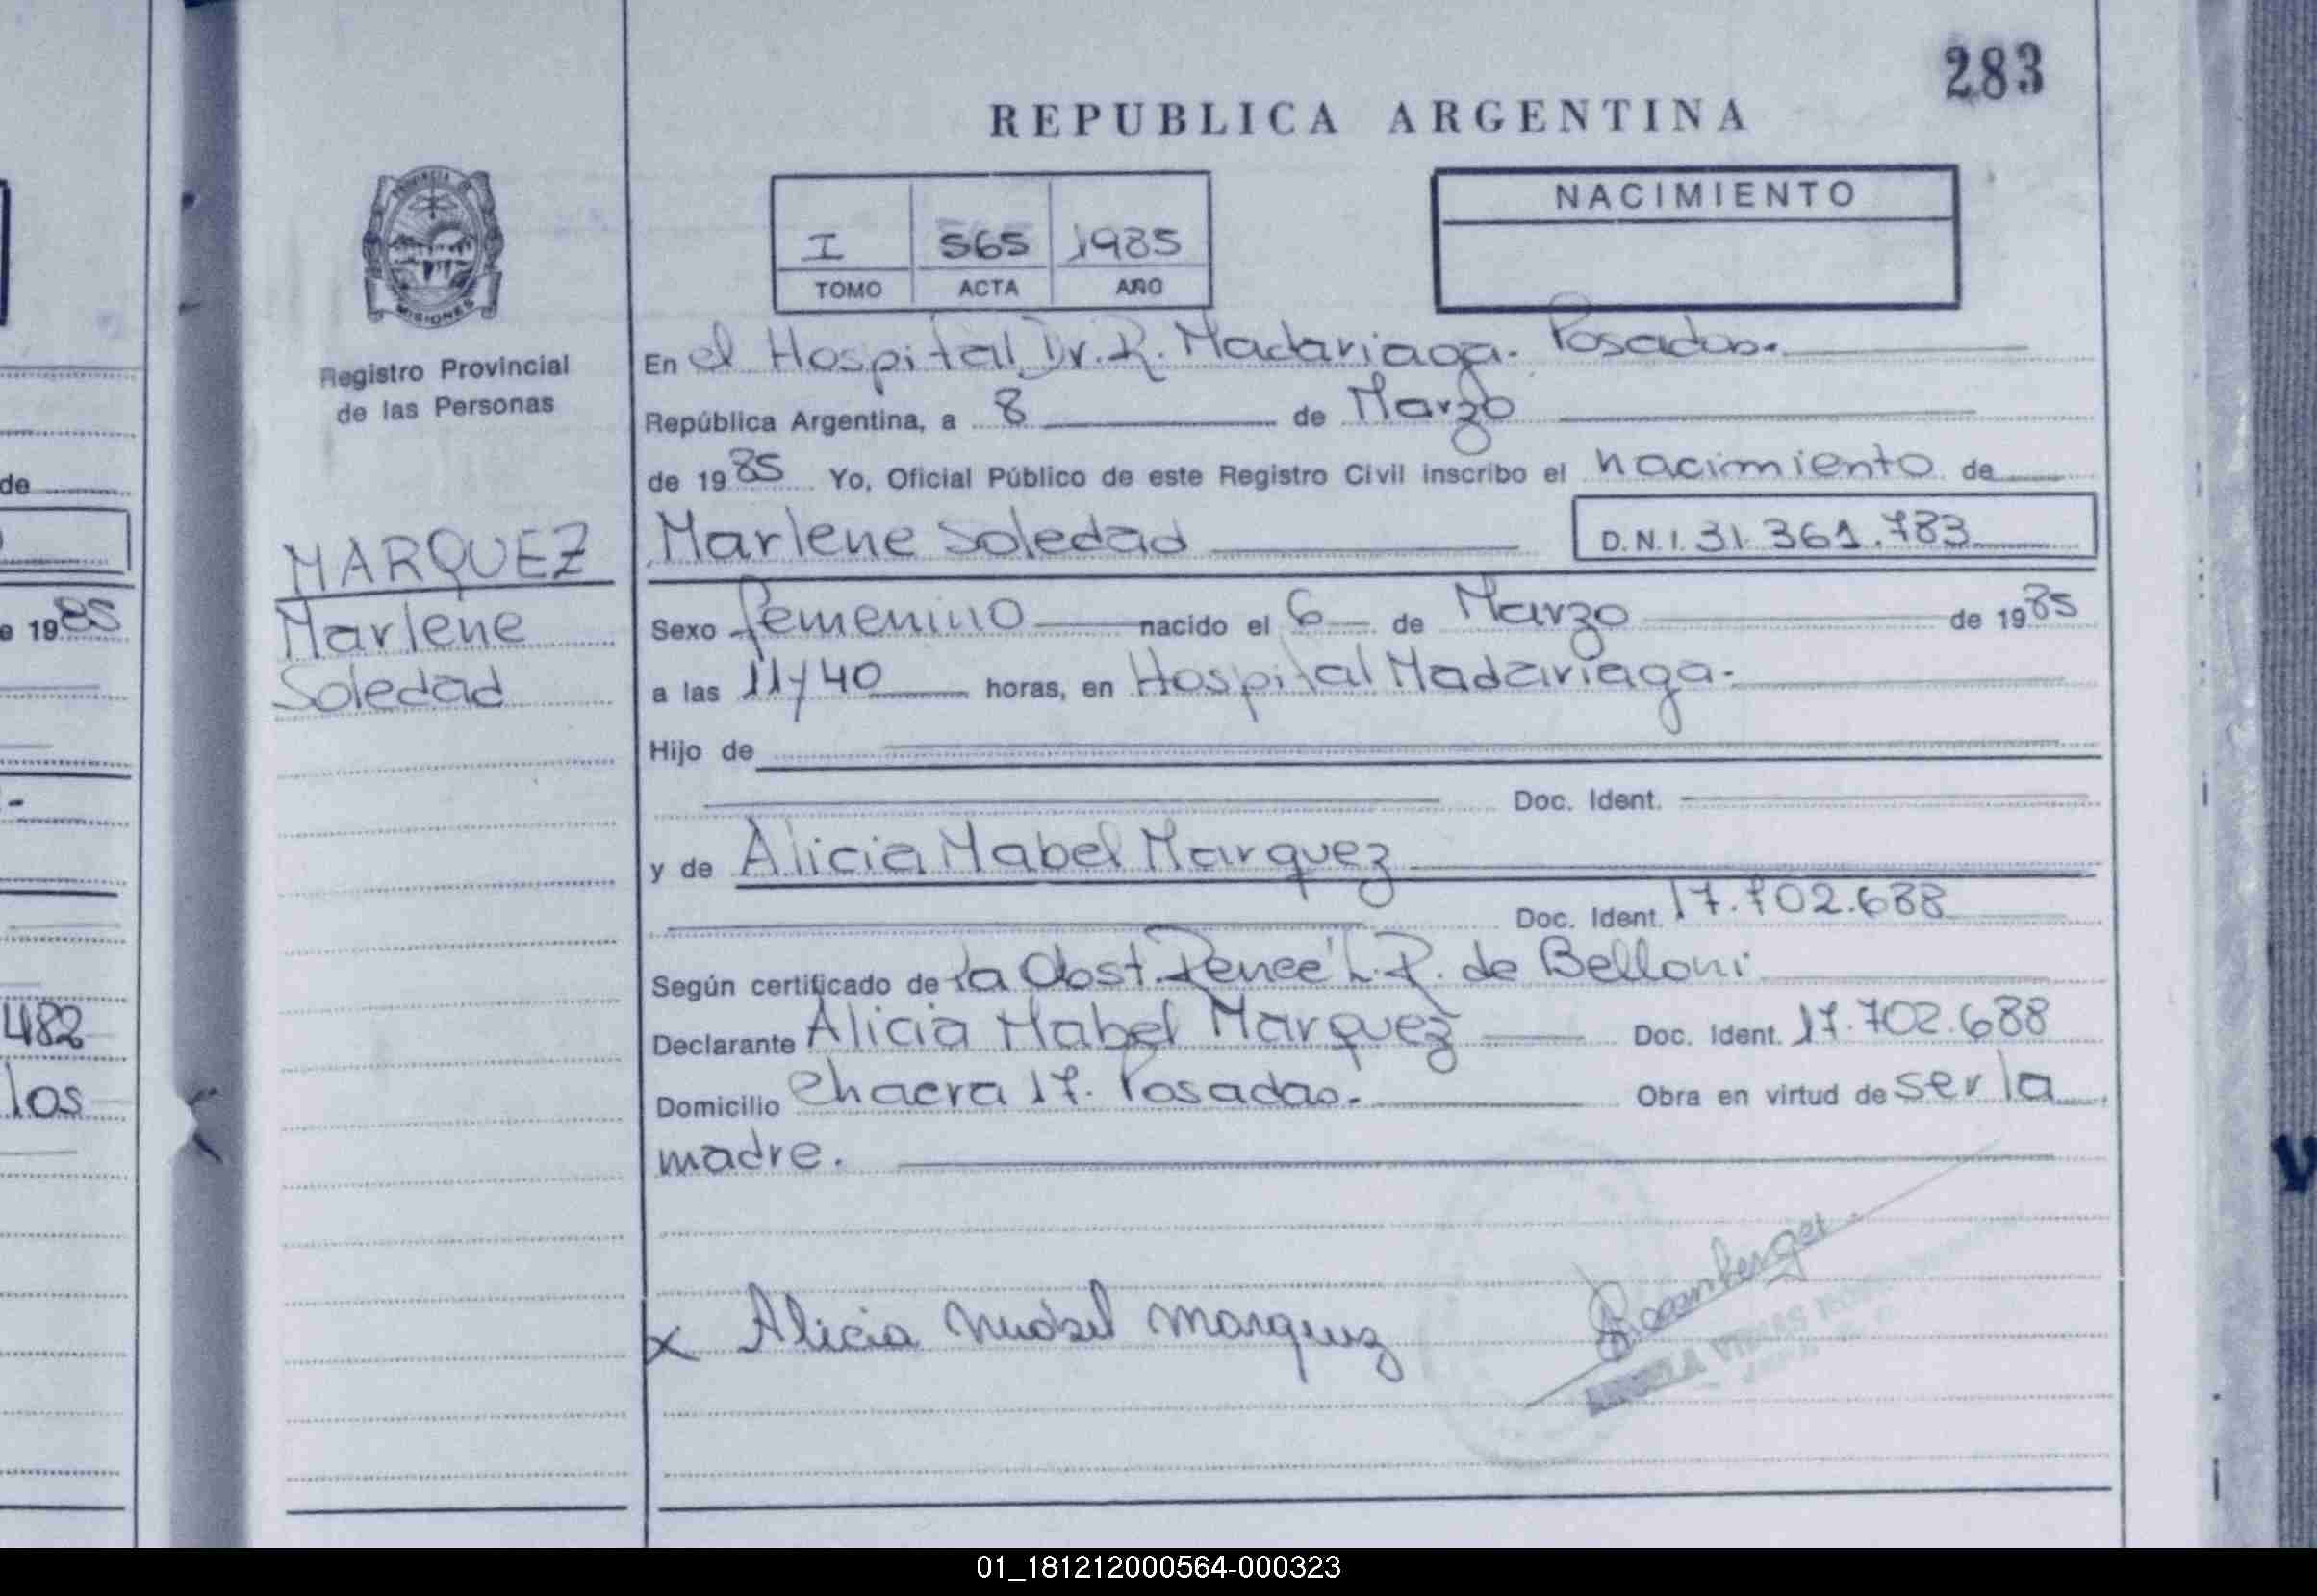 283
REPUBLICA ARGENTINA
PROVINCIA DE
MISIONES
Registro Provincial
de las Personas
I 565 1985
TOMO ACTA AÑO
NACIMIENTO
En el Hospital Dr. R. Madariaga. Posadas.
República Argentina, a 8 de Marzo
de 1985 Yo, Oficial Público de este Registro Civil inscribo el nacimiento de
Marlene Soledad D.N.I. 31.361.783
MARQUEZ
Marlene
Soledad
Sexo femenino nacido el 6 de Marzo de 1985
a las 11y40 horas, en Hospital Madariaga.
Hijo de
Doc. Ident.
y de Alicia Mabel Marquez
Doc. Ident. 17.702.688
Según certificado de la Obst. Renee L.R. de Belloni
Declarante Alicia Mabel Marquez Doc. Ident. 17.702.688
Domicilio Chacra 17. Posadas. Obra en virtud de ser la
madre.
x Alicia Mabel Marquez
de
e 1985
482
los
01_181212000564-000323